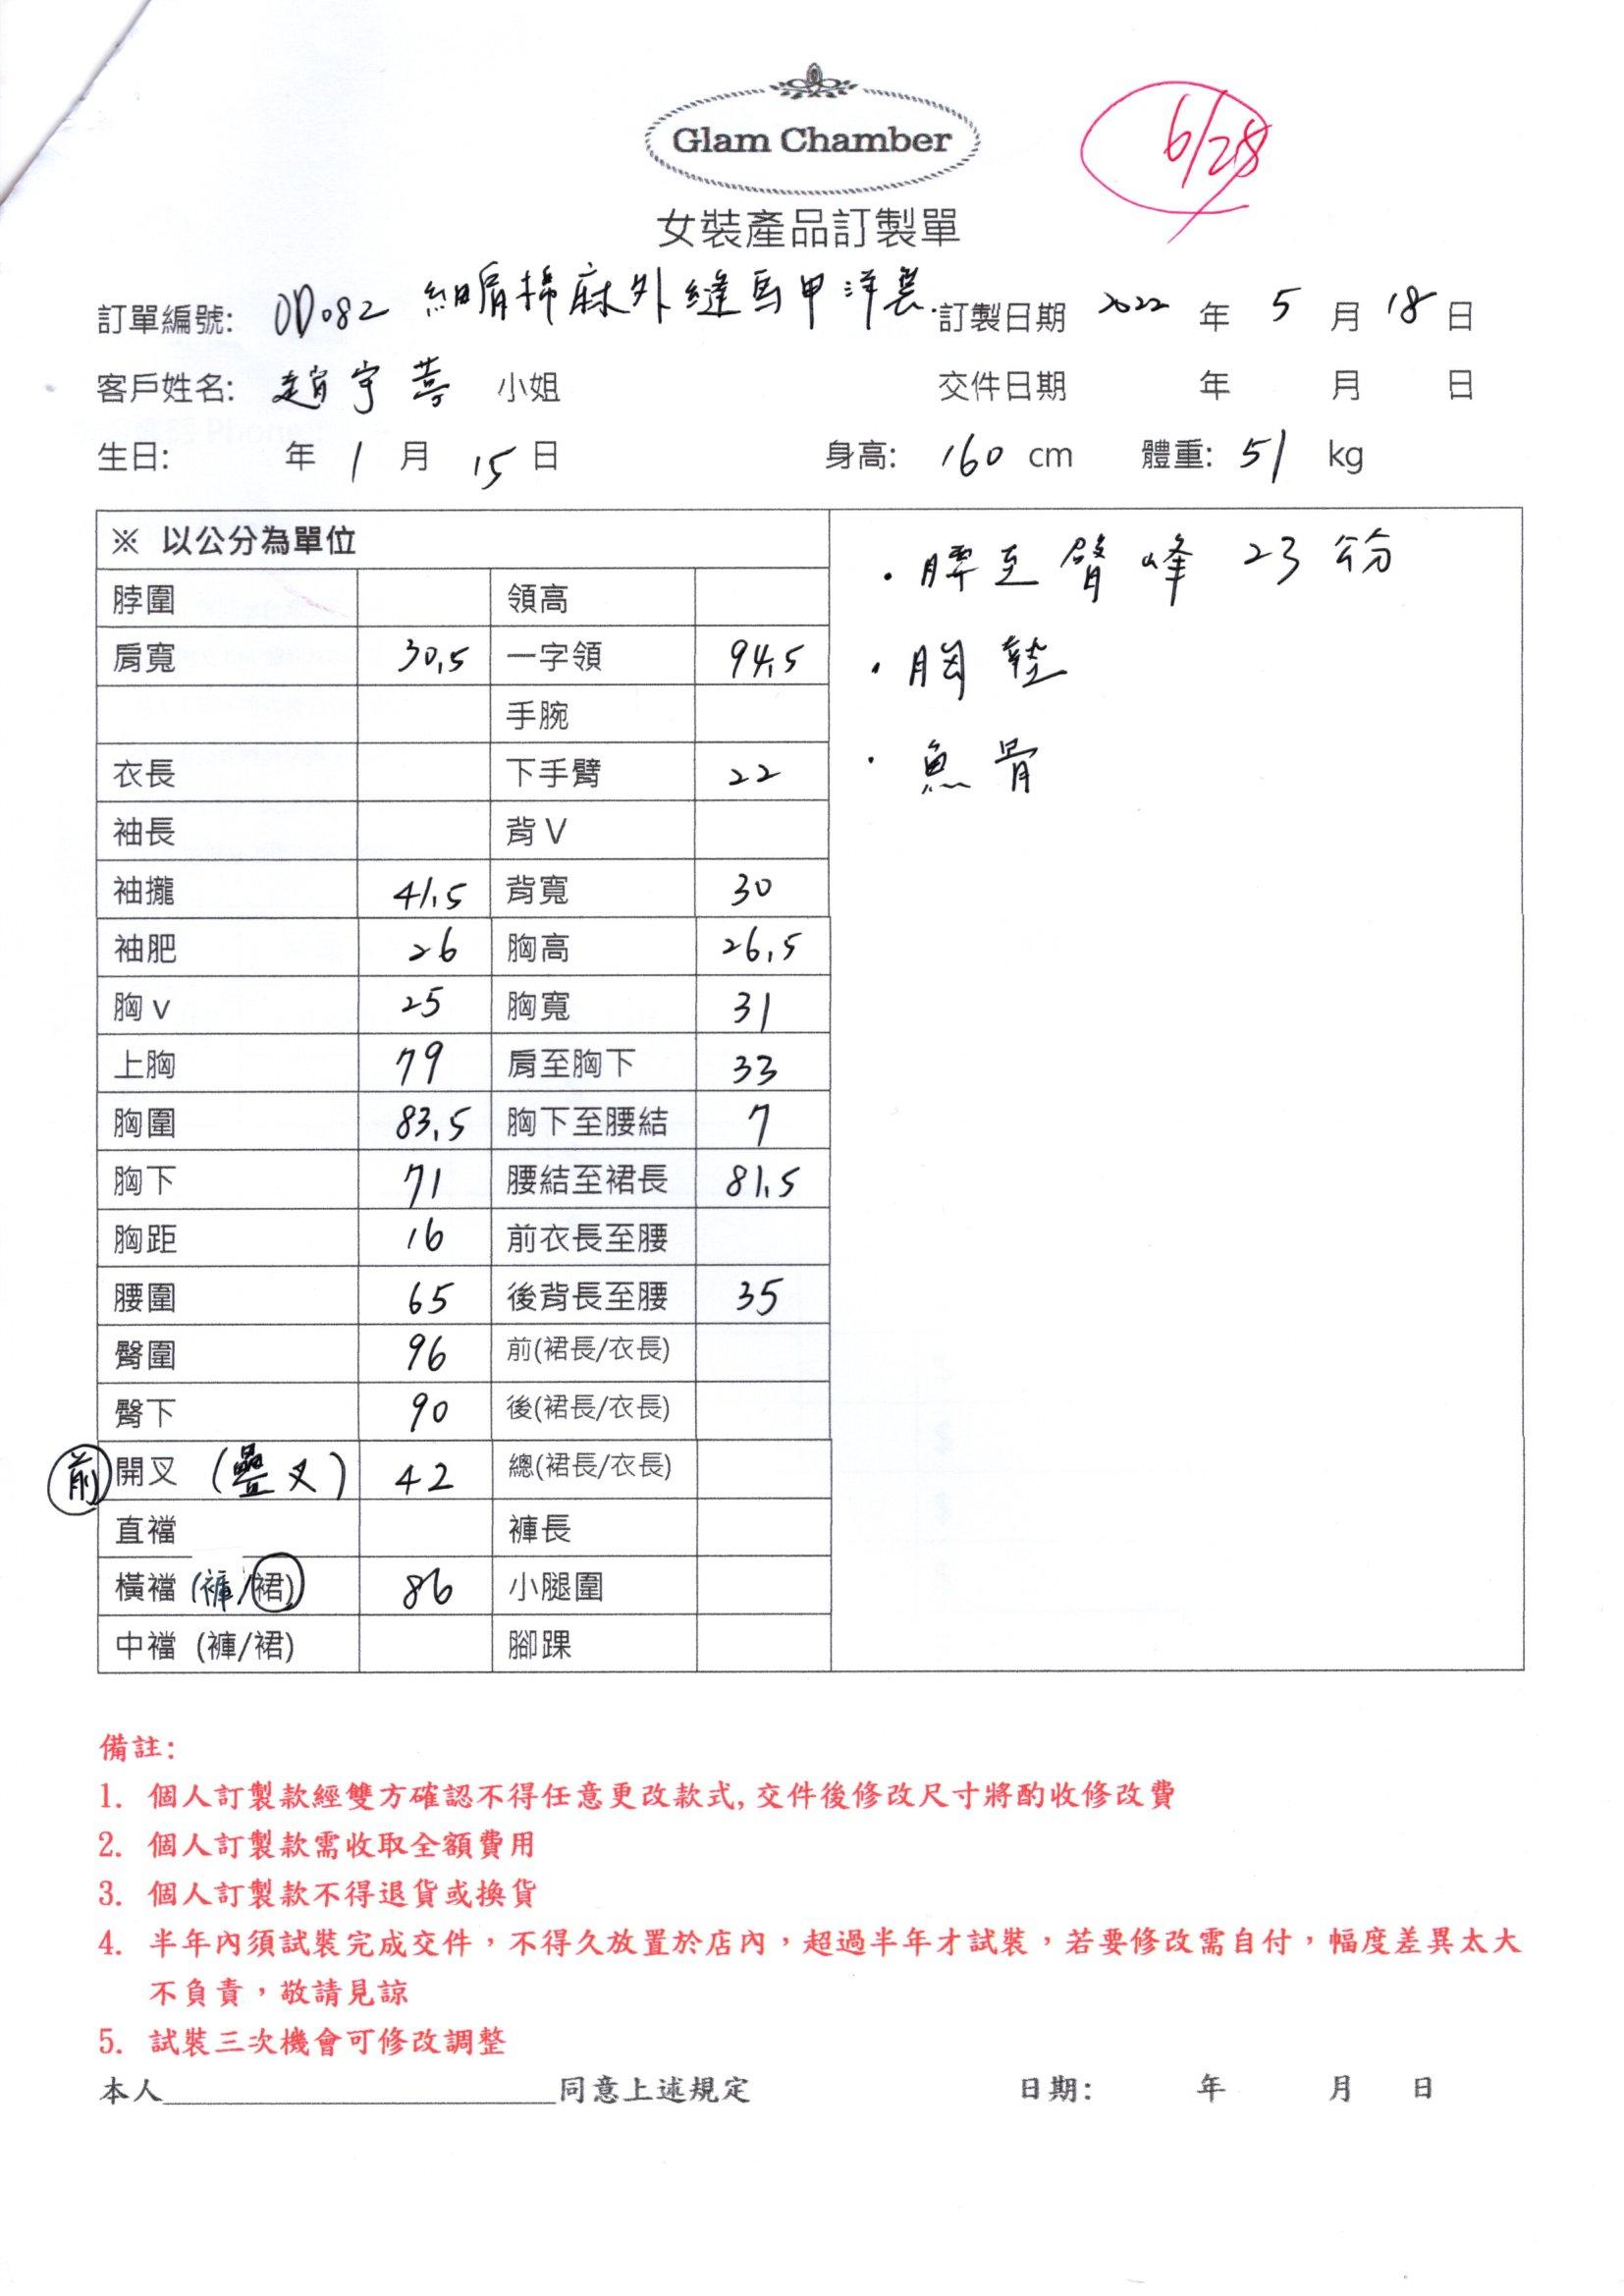 Glam Chamber
6/28
女裝產品訂製單
訂單編號: OD082 細肩棉麻外縫馬甲洋裝. 訂製日期 2022 年 5 月 18 日
客戶姓名: 趙宇 小姐 交件日期 年 月 日
生日: 年 1 月 15 日 身高: 160 cm 體重: 51 kg
※ 以公分為單位
脖圍 領高
肩寬 30.5 一字領 94.5
手腕
衣長 下手臂 22
袖長 背 V
袖攏 41.5 背寬 30
袖肥 26 胸高 26.5
胸 v 25 胸寬 31
上胸 79 肩至胸下 33
胸圍 83.5 胸下至腰結 7
胸下 71 腰結至裙長 81.5
胸距 16 前衣長至腰
腰圍 65 後背長至腰 35
臀圍 96 前(裙長/衣長)
臀下 90 後(裙長/衣長)
前 開叉 (疊叉) 42 總(裙長/衣長)
直襠 褲長
橫襠 (褲/裙) 86 小腿圍
中襠 (褲/裙) 腳踝
· 腰至臀峰 23 公分
· 胸墊
· 魚骨
備註:
1. 個人訂製款經雙方確認不得任意更改款式, 交件後修改尺寸將酌收修改費
2. 個人訂製款需收取全額費用
3. 個人訂製款不得退貨或換貨
4. 半年內須試裝完成交件，不得久放置於店內，超過半年才試裝，若要修改需自付，幅度差異太大
不負責，敬請見諒
5. 試裝三次機會可修改調整
本人____________________同意上述規定 日期: 年 月 日